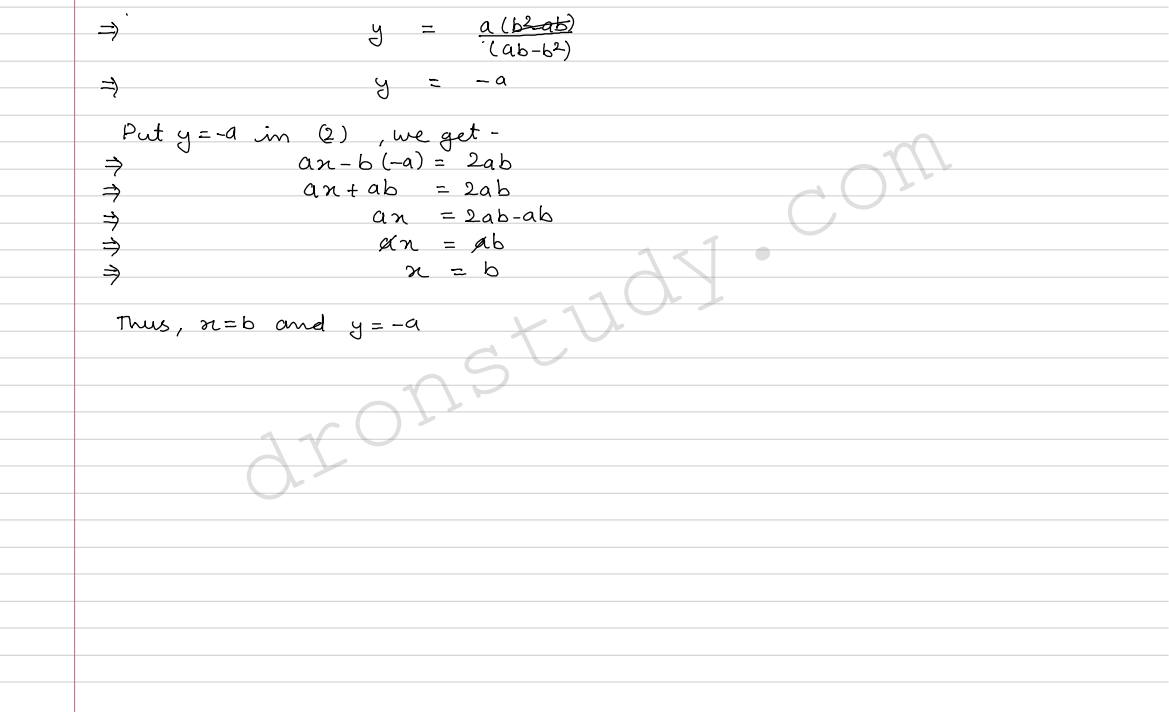 ⇒ y = a(b²-ab)/(ab-b²)
⇒ y = -a
Put y=-a in (2), we get -
⇒ ax-b(-a) = 2ab
⇒ ax+ab = 2ab
⇒ ax = 2ab-ab
⇒ ax = ab
⇒ x = b
Thus, x=b and y=-a
dronstudy.com